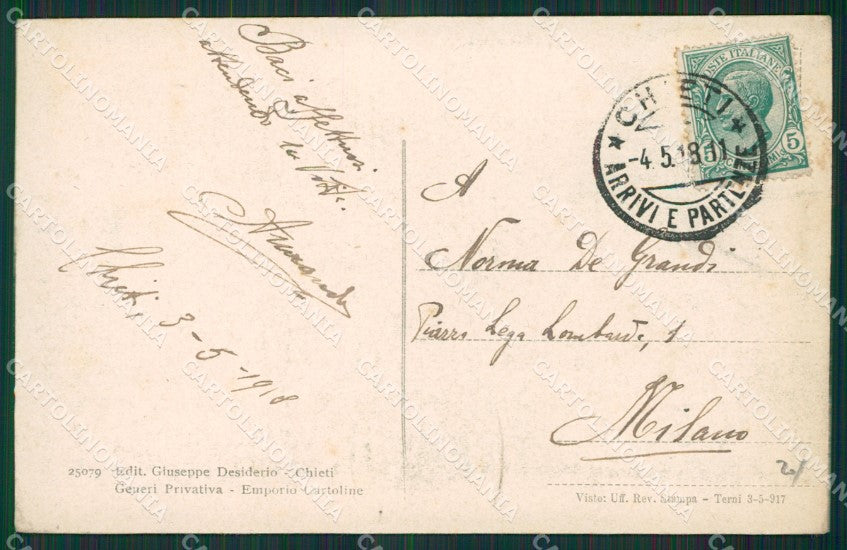 Baci affettuosi
attendendo la Vostra.
Armando
Chieti, 3-5-1918
25079 Edit. Giuseppe Desiderio - Chieti
Generi Privativa - Emporio Cartoline
POSTE ITALIANE
5
CHIETI
-4.5.18.11
ARRIVI E PARTENZE
A
Norma De Grandi
Piazza Lega Lombarda, 1
Milano
Visto: Uff. Rev. Stampa - Terni 3-5-917
CARTOLINOMANIA